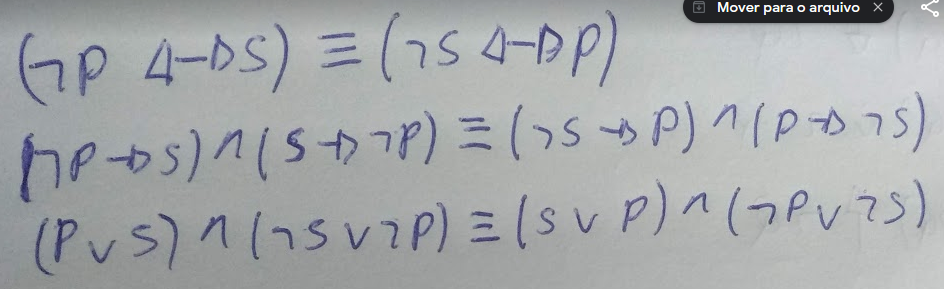 Mover para o arquivo ×
(¬P ↔ S) ≡ (¬S ↔ P)
(¬P → S) ∧ (S → ¬P) ≡ (¬S → P) ∧ (P → ¬S)
(P ∨ S) ∧ (¬S ∨ ¬P) ≡ (S ∨ P) ∧ (¬P ∨ ¬S)